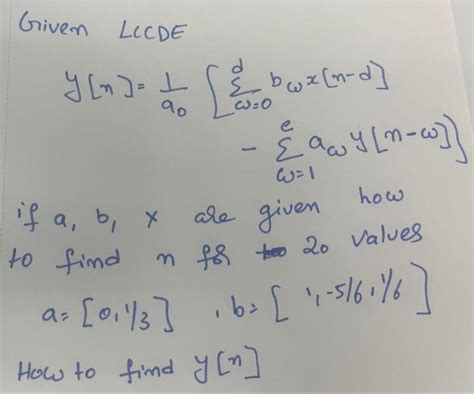 Given LCCDE
y[n] = 1/a₀ [ Σ_{ω=0}^{d} b_ω x[n-d]
- Σ_{ω=1}^{e} a_ω y[n-ω] ]}
if a, b, x are given how
to find n for 20 values
a = [0, 1/3] , b = [ 1, -5/6, 1/6 ]
How to find y[n]